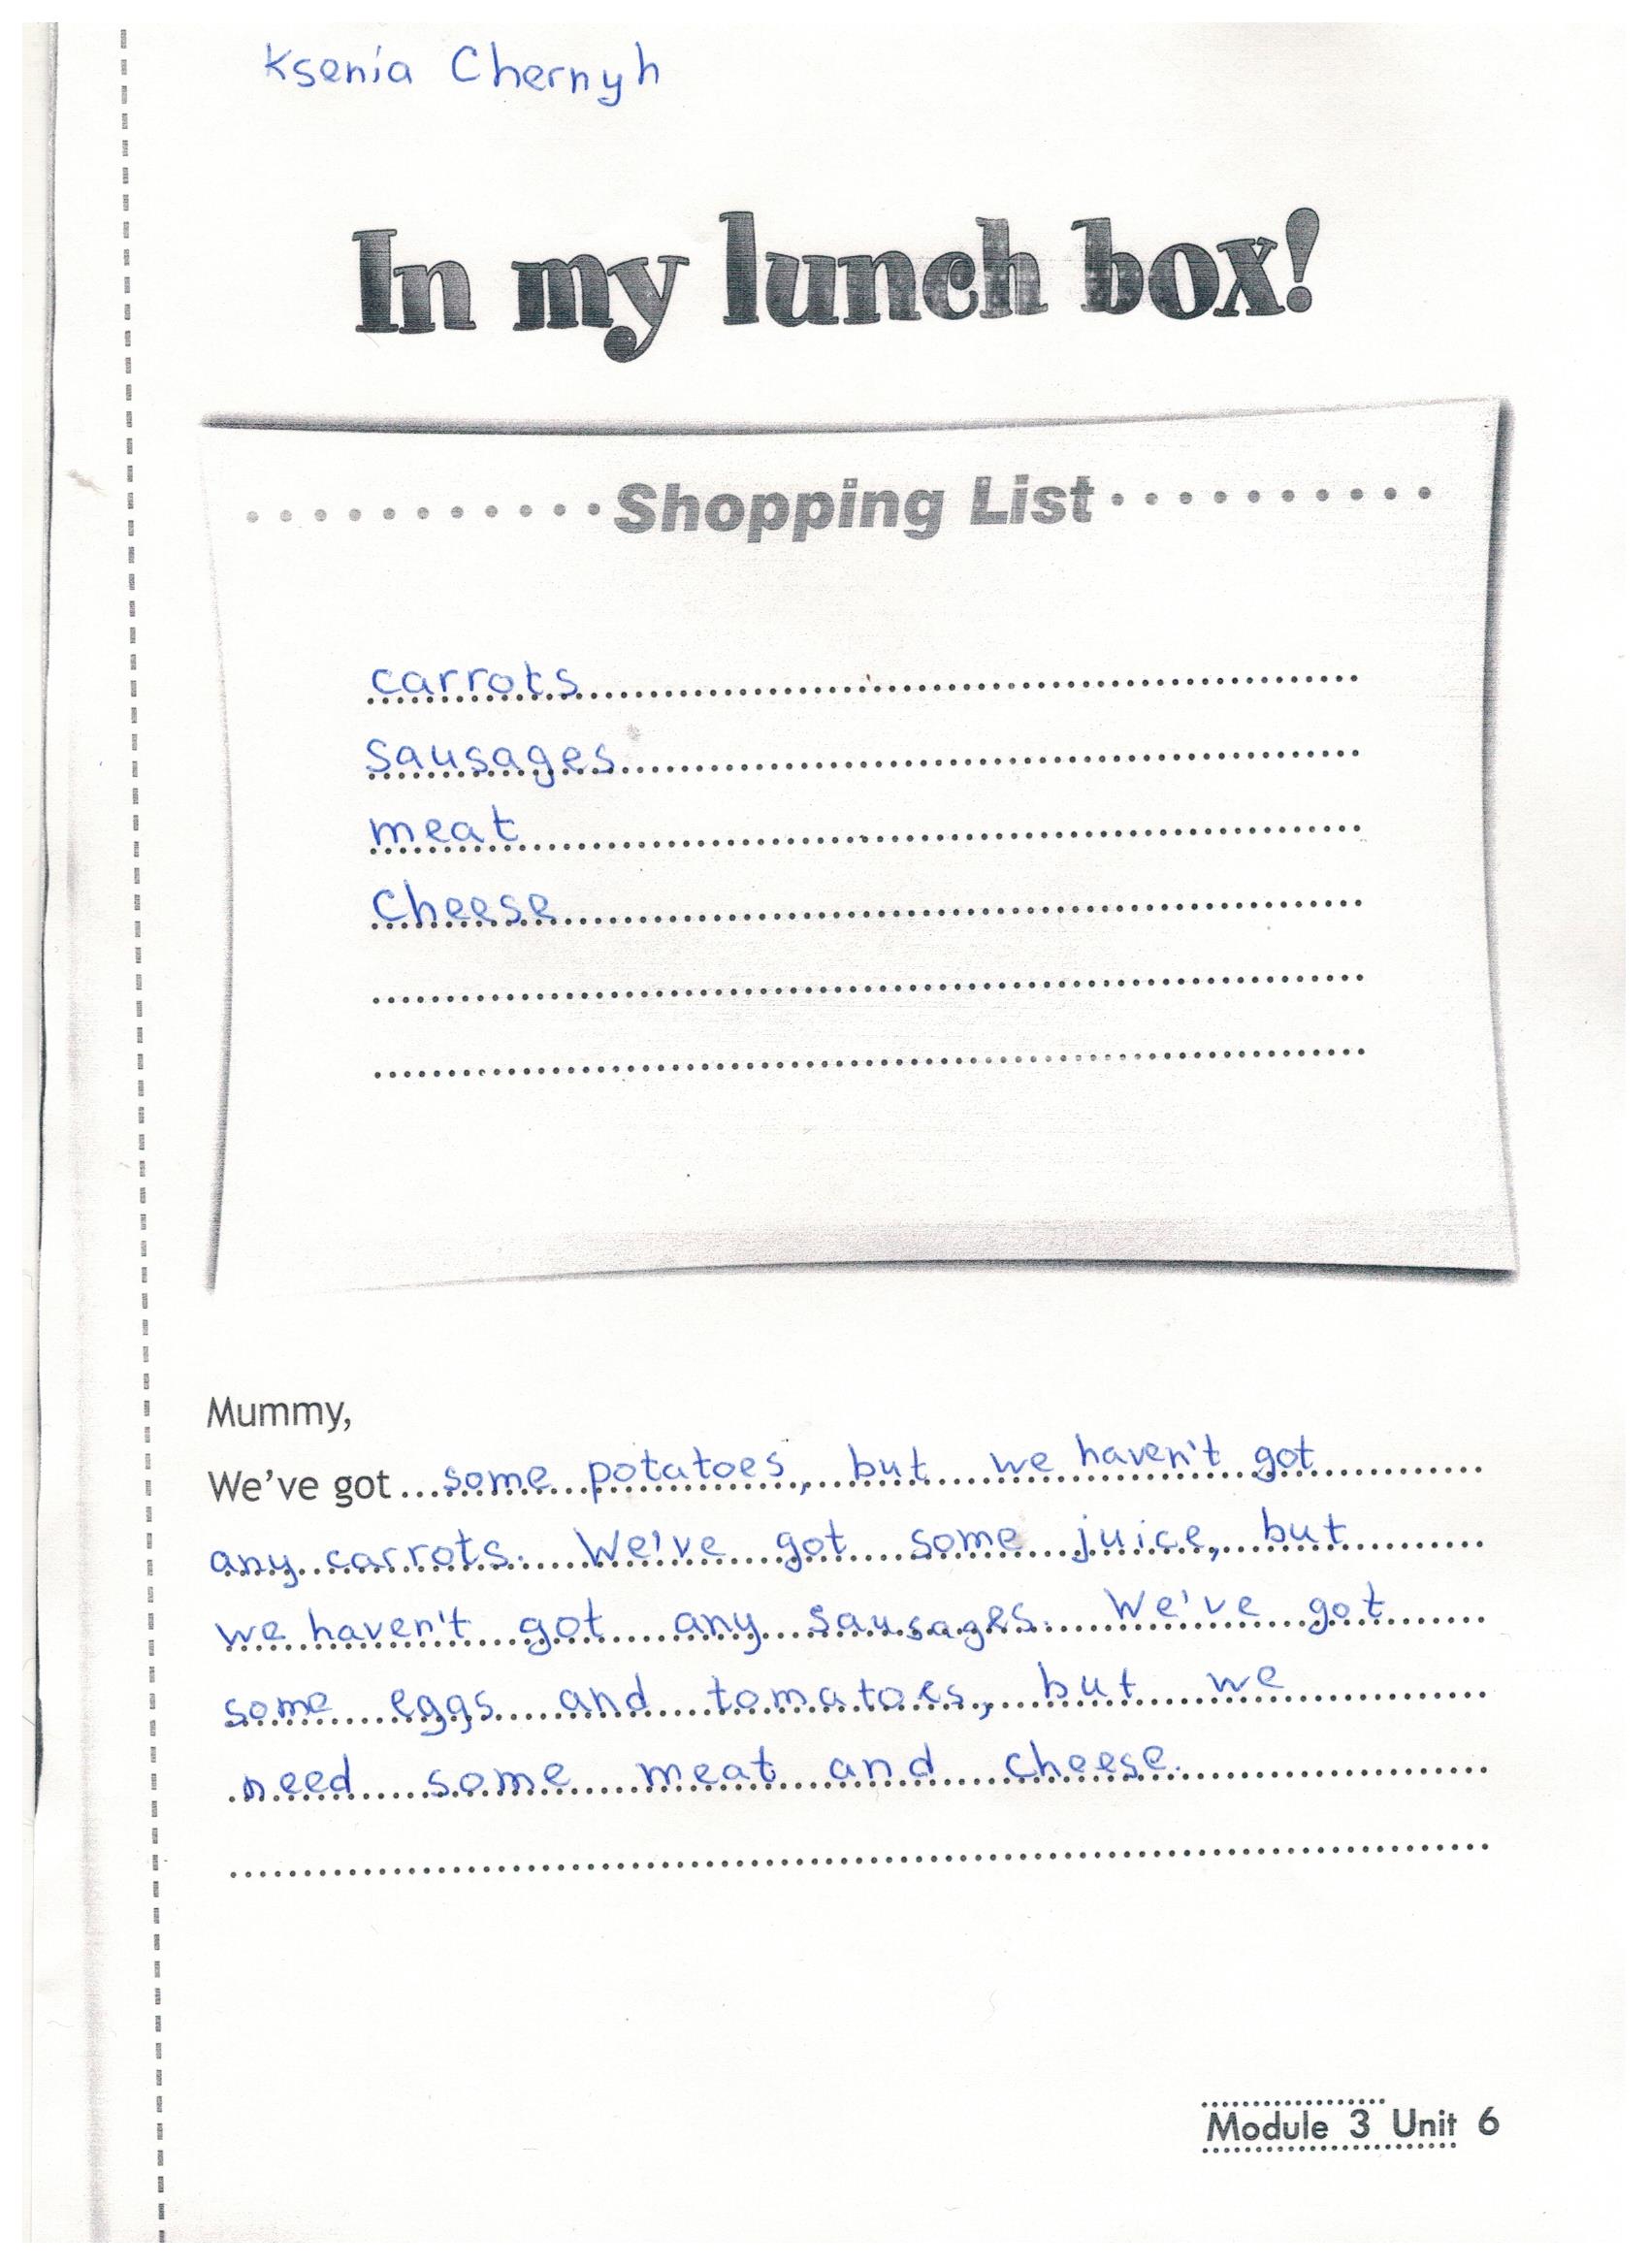 Ksenia Chernyh
In my lunch box!
Shopping List
carrots
sausages
meat
cheese
Mummy,
We've got some potatoes, but we haven't got
any carrots. We've got some juice, but
we haven't got any sausages. We've got
some eggs and tomatoes, but we
need some meat and cheese.
Module 3 Unit 6